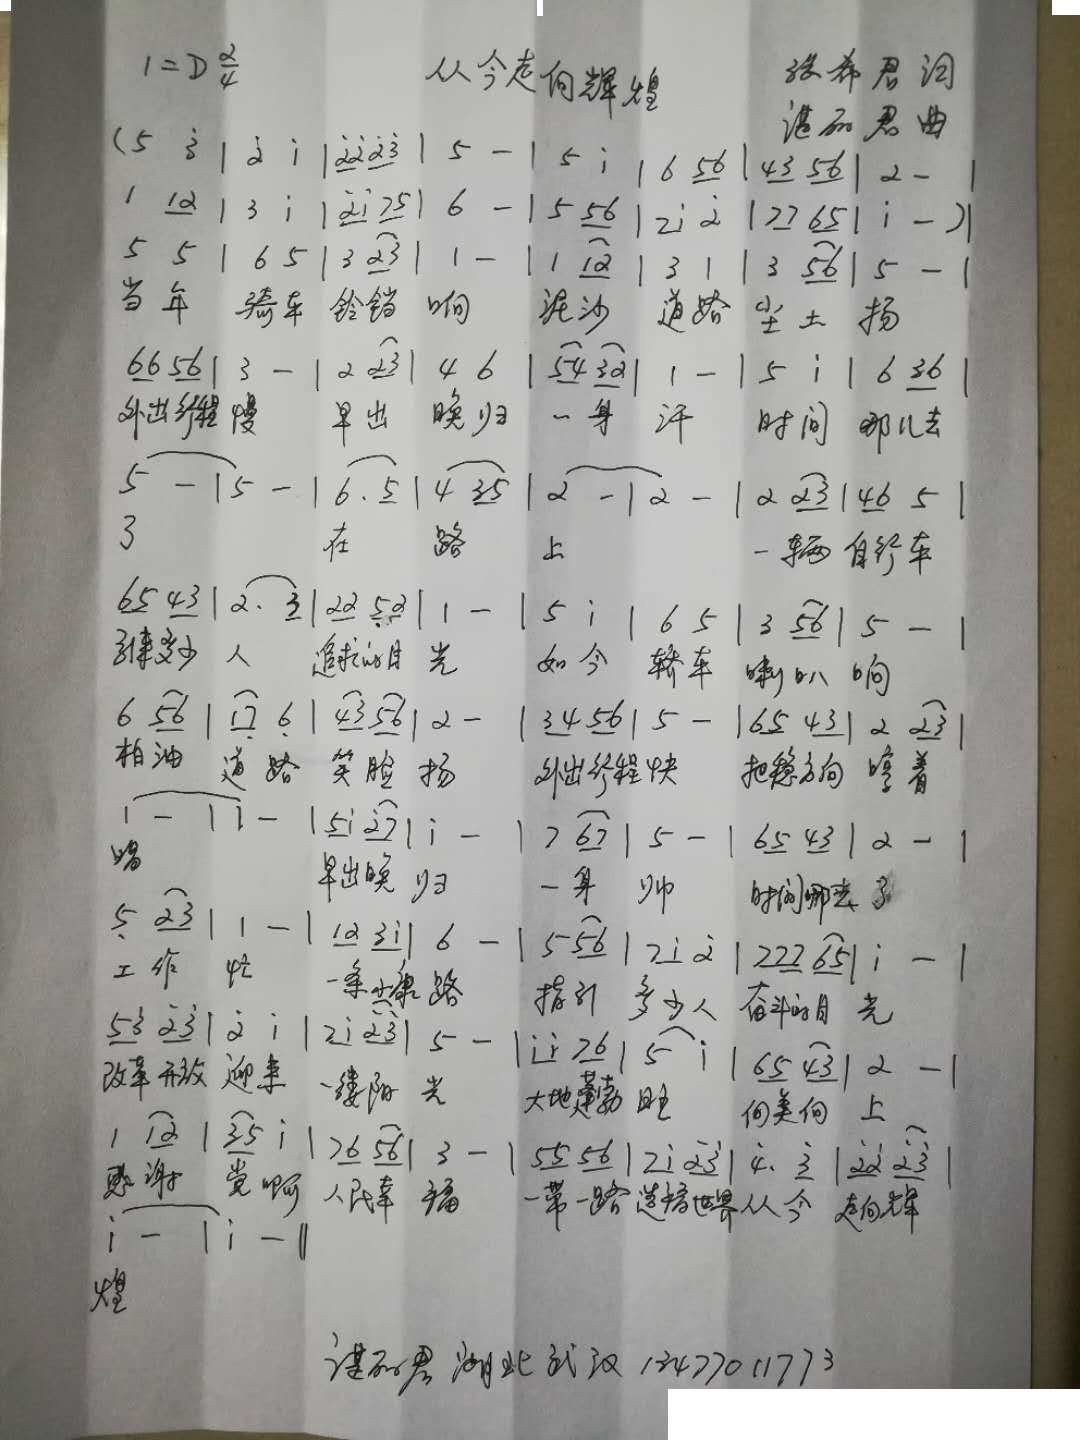 1=D 2/4 从今走向辉煌 张希君词
谌丽君曲
(5 3̇ | 2̇ i | 2̇2̇ 2̇3̇ | 5 - | 5 i | 6 56 | 43 56 | 2 - |
1 12 | 3 i | 2̇i 75 | 6 - | 5 56 | 7i 2̇ | 77 65 | i - )|
5 5 | 6 5 | 3 23 | 1 - | 1 12 | 3 1 | 3 56 | 5 - |
当年 骑车 铃铛 响 泥沙 道路 尘土 扬
66 56 | 3 - | 2 23 | 4 6 | 54 32 | 1 - | 5 i | 6 36 |
外出行程 慢 早出 晚归 一身 汗 时间 哪儿去
5 - | 5 - | 6. 5 | 4 35 | 2 - | 2 - | 2 23 | 46 5 |
了 在 路 上 一辆 自行车
65 43 | 2. 3 | 22 5̣2 | 1 - | 5 i | 6 5 | 3 56 | 5 - |
引来多少 人 追求的目 光 如今 轿车 喇叭 响
6 56 | 17̣ 6̣ | 43 56 | 2 - | 34 56 | 5 - | 65 43 | 2 23 |
柏油 道路 笑脸 扬 外出行程 快 把稳方向 哼着
i - | i - | 5i 2̇7 | i - | 7 67 | 5 - | 65 43 | 2 - |
唱 早出晚 归 一身 帅 时间哪去 了
5̣ 23 | 1 - | 12 3i | 6 - | 5 56 | 7i 2̇ | 777 65 | i - |
工作 忙 一条小康 路 指引 多少人 奋斗的目 光
53̇ 2̇3̇ | 2̇ i | 7i 2̇3̇ | 5 - | ii 76 | 5 i | 65 43 | 2 - |
改革开放 迎来 一缕阳 光 大地蓬勃 旺 向美向 上
1 12 | 35 i | 76 56 | 3 - | 55 56 | 7i 2̇3̇ | 4̇. 3̇ | 2̇2̇ 2̇3̇ |
感谢 党啊 人民幸 福 一带一路 造福世界 从今 走向辉
i - | i - ‖
煌
谌丽君 湖北武汉 13477011773